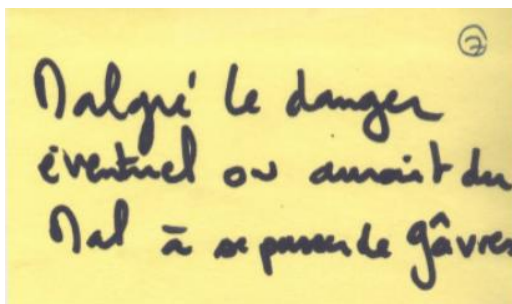 ②
Malgré le danger
éventuel on aurait du
Mal à se passer de Gâvres